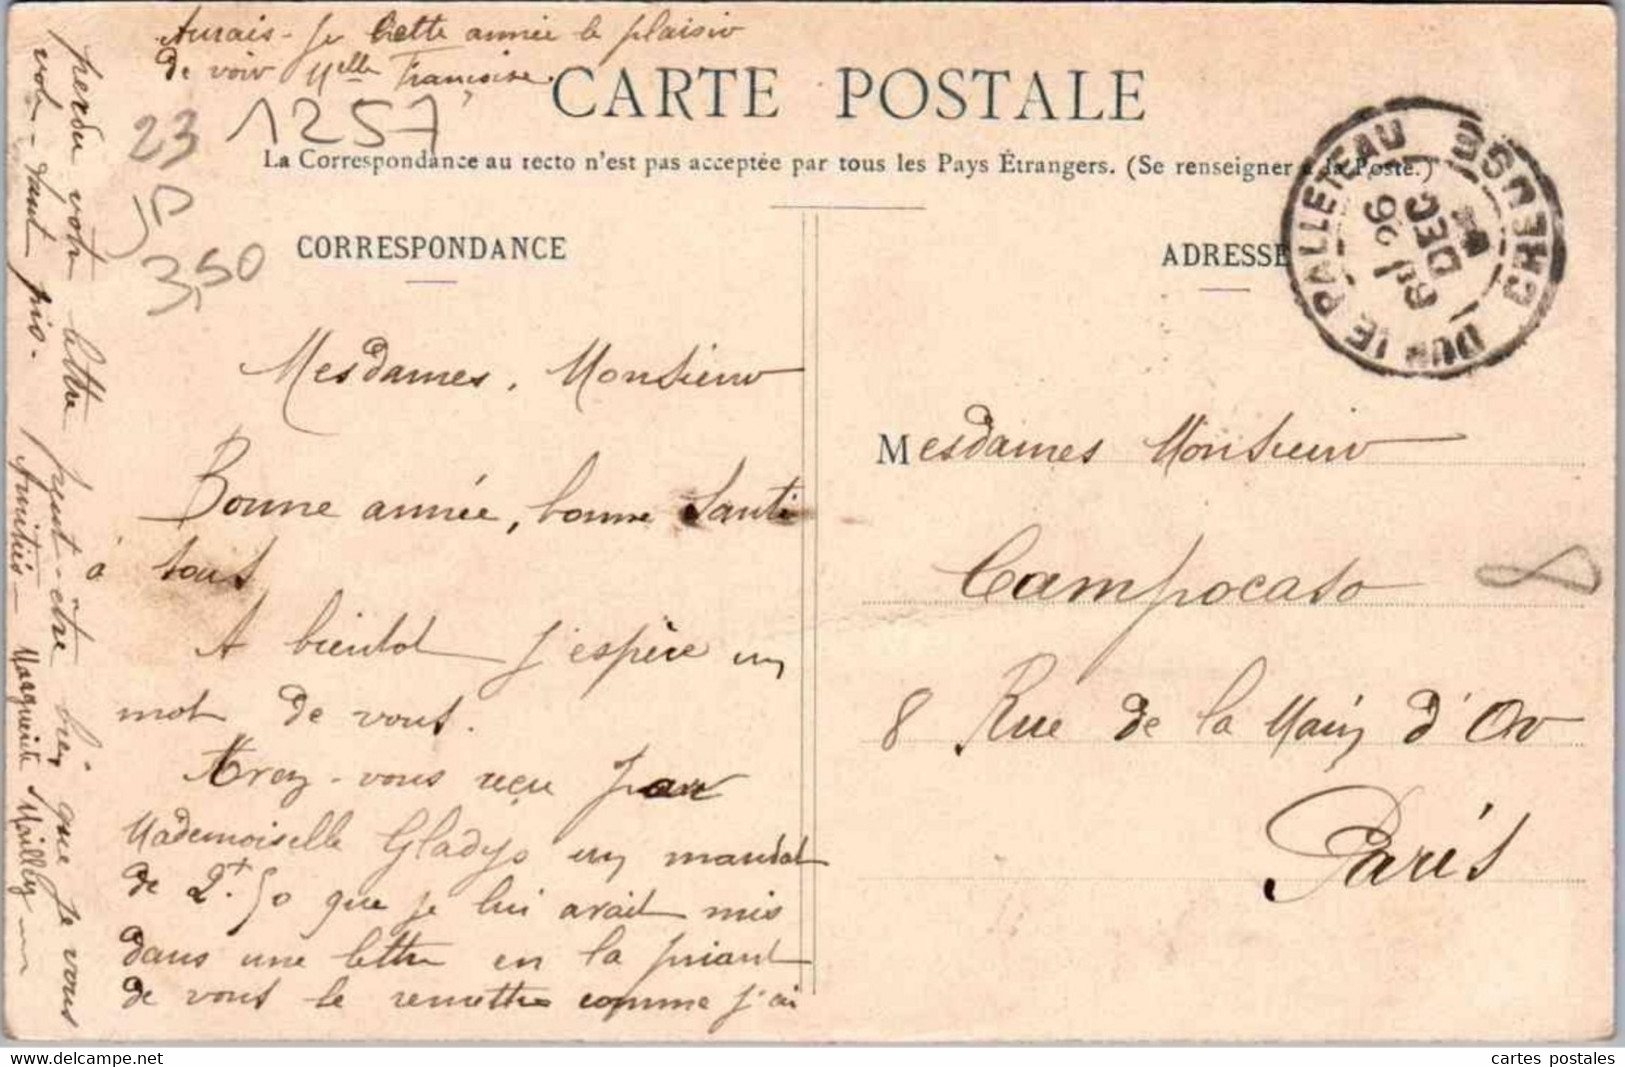 Aurais-je cette année le plaisir
de voir Melle Françoise.
CARTE POSTALE
La Correspondance au recto n'est pas acceptée par tous les Pays Étrangers. (Se renseigner à la Poste.)
23
1257
3,50
CORRESPONDANCE
Mesdames, Monsieur
Bonne année, bonne santé
à tous
A bientôt j'espère un
mot de vous.
Avez-vous reçu par
Mademoiselle Gladys un mandat
de 2f. 50 que je lui avait mis
dans une lettre en la priant
de vous le remettre comme j'ai
perdu votre lettre peut-être bien que je vous
vole - tant pis.
Amitiés - Marguerite Mailley
ADRESSE
DUN LE PALLETEAU
CREUSE
DEC
Mesdames Monsieur
Campocaso
8 Rue de la Main d'Or
Paris
8
www.delcampe.net
cartes postales